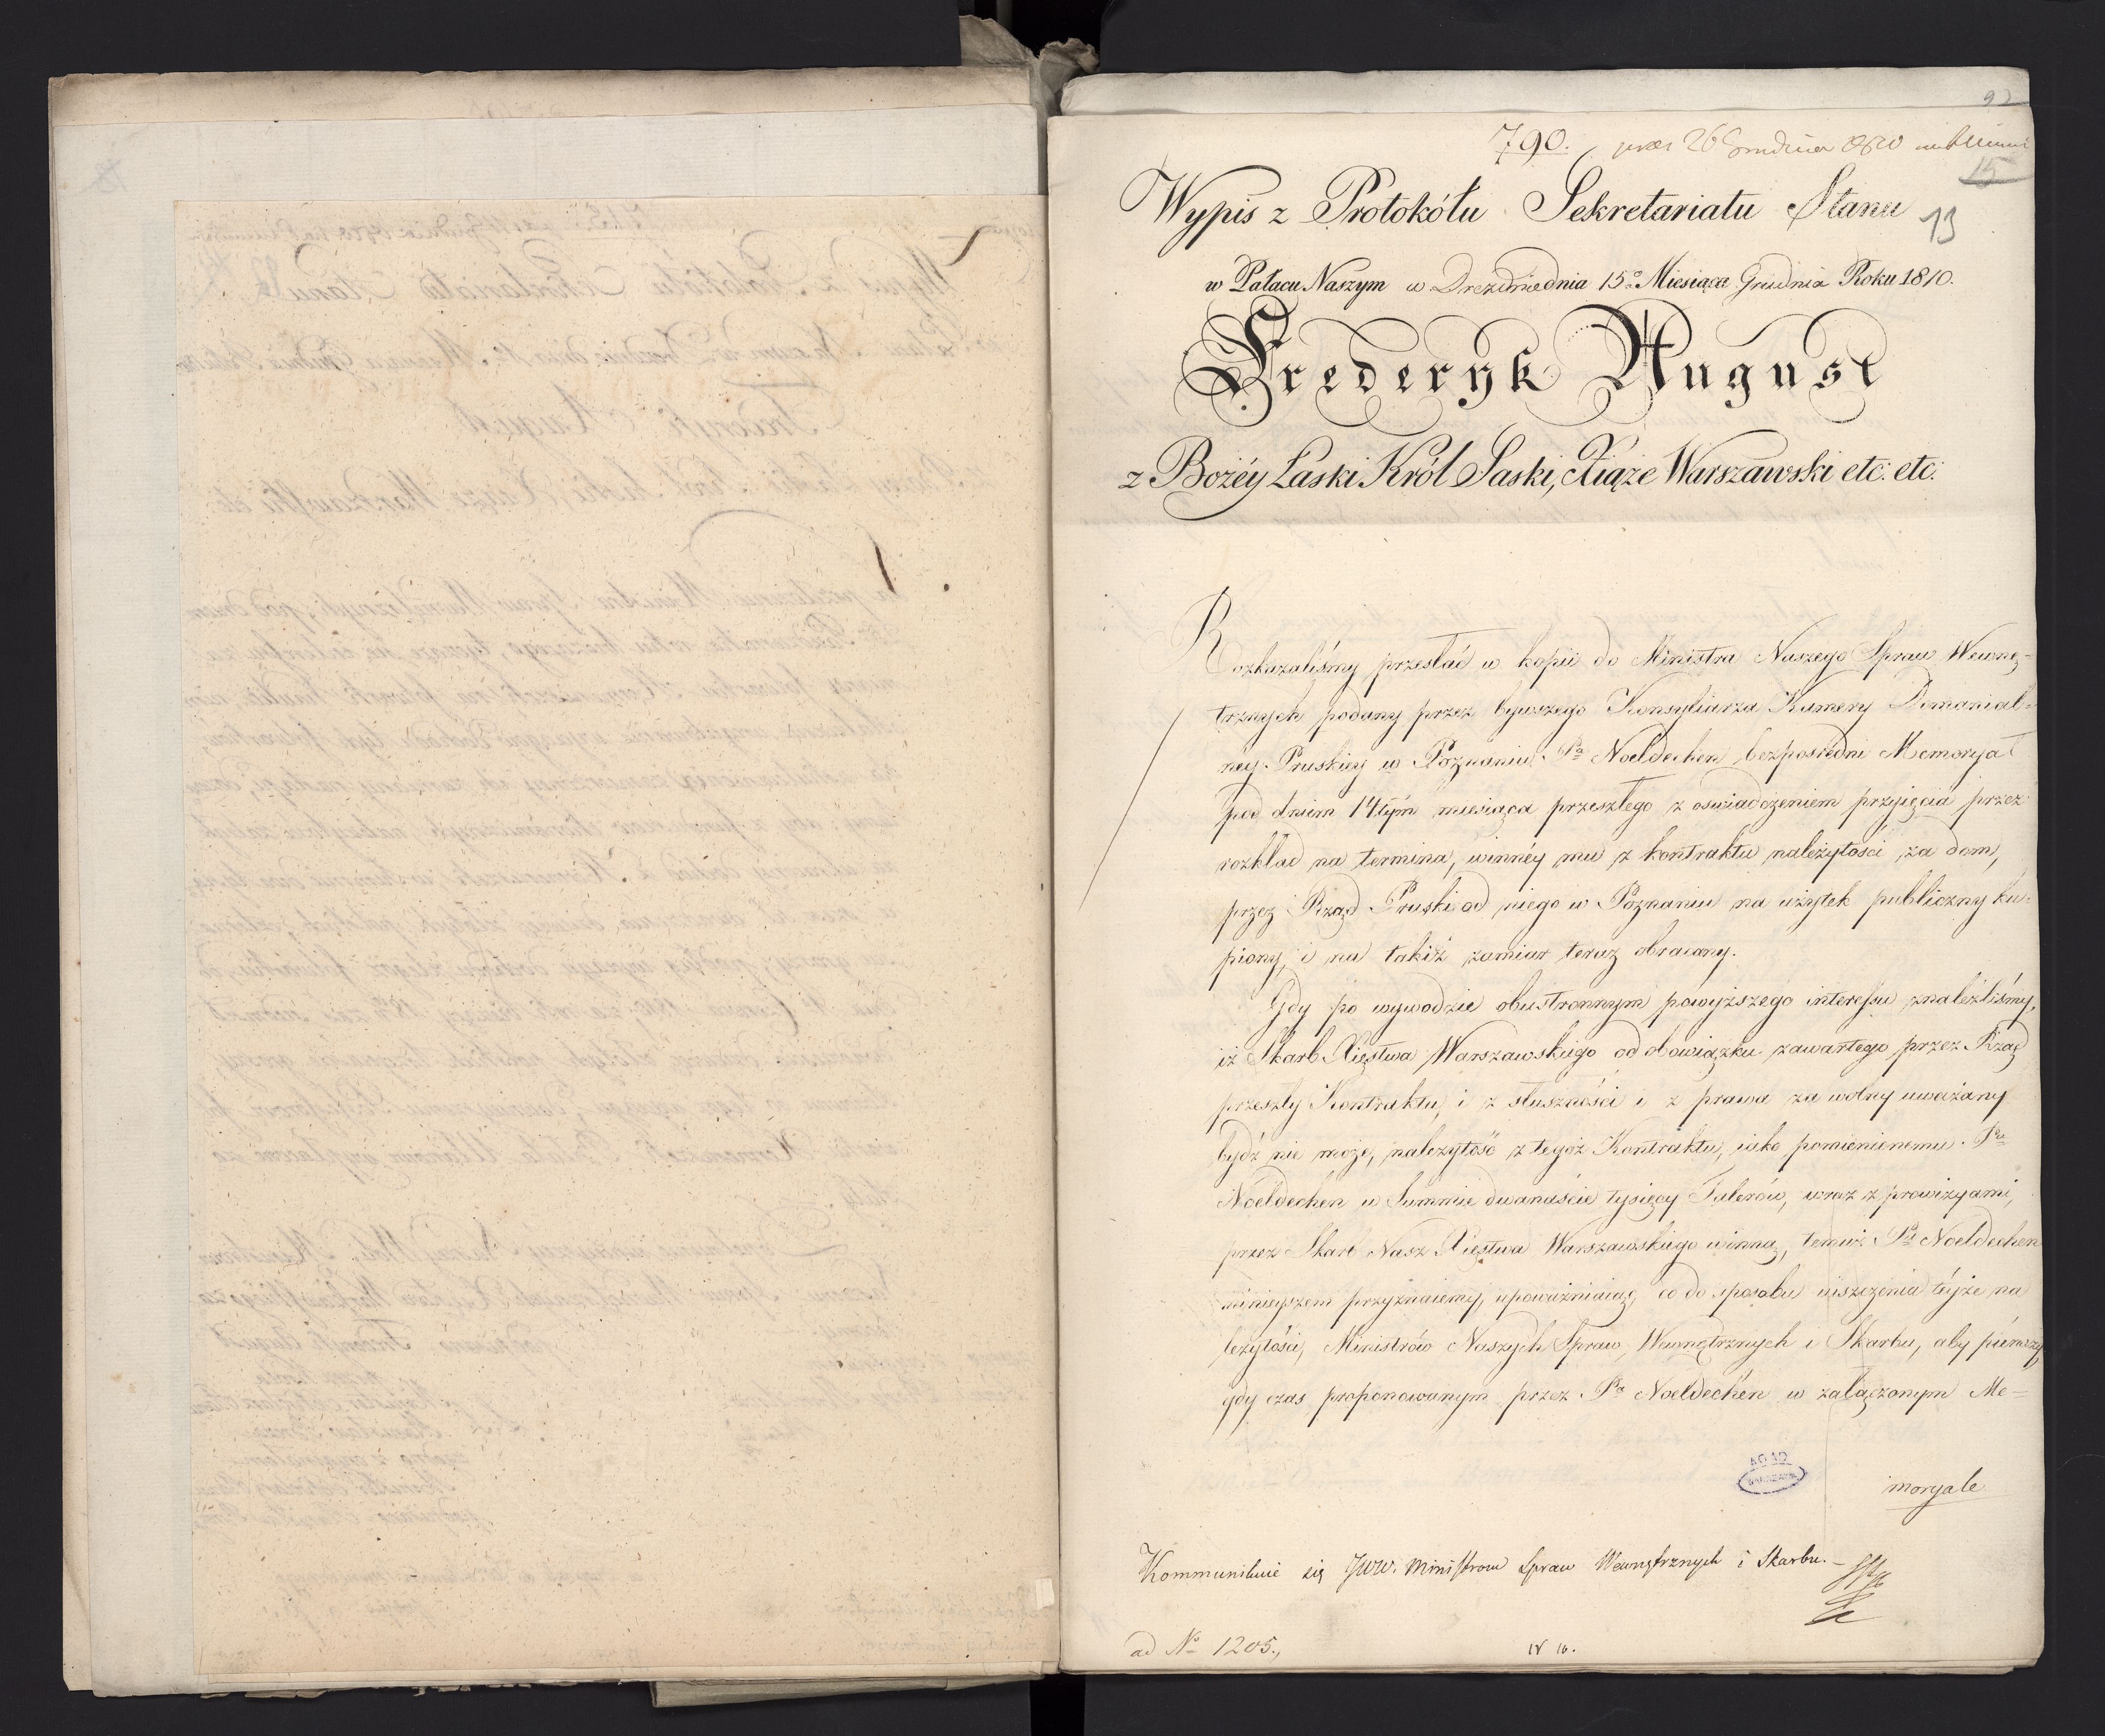 92
790. prod 26 Grudnia 1810
15
Wypis z Protokółu Sekretariatu Stanu
13
w Pałacu Naszym w Dreznie dnia 15º Miesiąca Grudnia Roku 1810.
Frederyk August
z Bożéy Łaski Król Saski, Xiąże Warszawski etc: etc:
Rozkazaliśmy przesłać w kopii do Ministra Naszego Spraw Wewnę-
trznych podany przez bywszego Konsyliarza Kamery Domanial-
ney Pruskiey w Poznaniu Pa Noeldechen bezpośredni Memoryał
pod dniem 14tym miesiąca przeszłego z oswiadczeniem przyięcia przez
rozkład na termina, winnéy mu z kontraktu należytości za dom,
przez Rząd Pruski od niego w Poznaniu na użytek publiczny ku-
piony, i na takiż zamiar teraz obracany.
Gdy po wywodzie obustronnym powyższego interessu znaleźliśmy,
iż Skarb Xięstwa Warszawskiego od obowiązku zawartego przez Rząd
przeszły Kontraktu, i z słuszności i z prawa za wolny uważany
bydź nie może, należytość z tegoż Kontraktu, iako pomienionemu Pu
Noeldechen w Summie dwanaście tysięcy Talerów, wraz z prowizyami,
przez Skarb Nasz Xięstwa Warszawskiego winną, temuż Pu Noeldechen
ninieyszem przyznaiemy, upoważniaiąc co do sposobu uiszczenia téyże na
leżytości, Ministrów Naszych Spraw Wewnętrznych i Skarbu, aby pierwszy,
gdy czas proponowanym przez Pa Noeldechen w załączonym Me=
moryale
AGAD
WARSZAWA
Kommunikuie się JWW. Ministrom Spraw Wewnętrznych i Skarbu.
ad No 1205.
N 16.